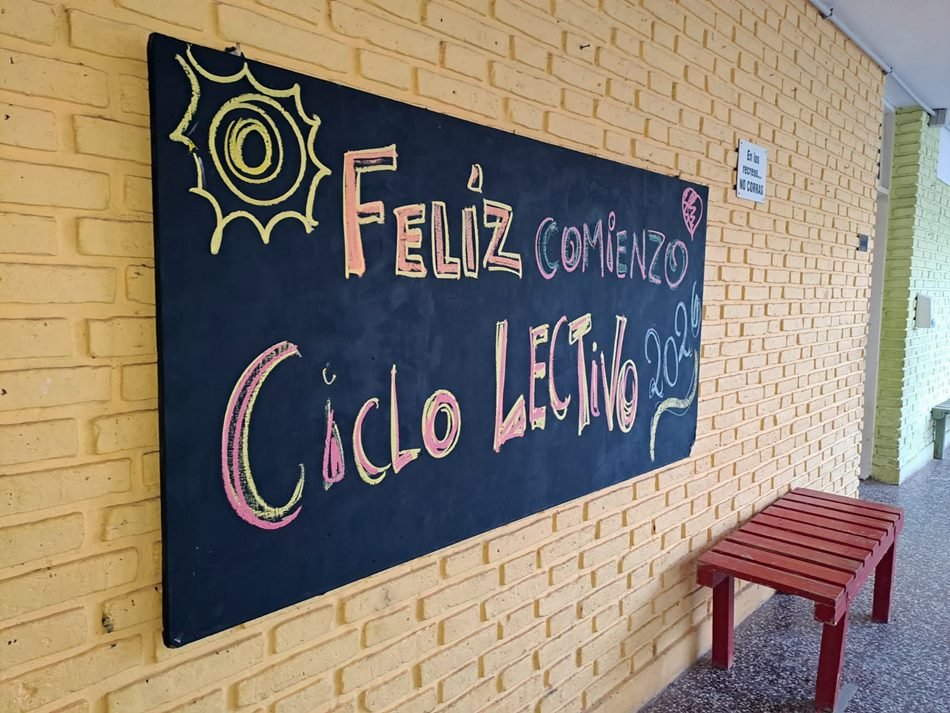 FELÍZ COMIENZO
CICLO LECTIVO 2026
En los
recreos...
NO CORRAS